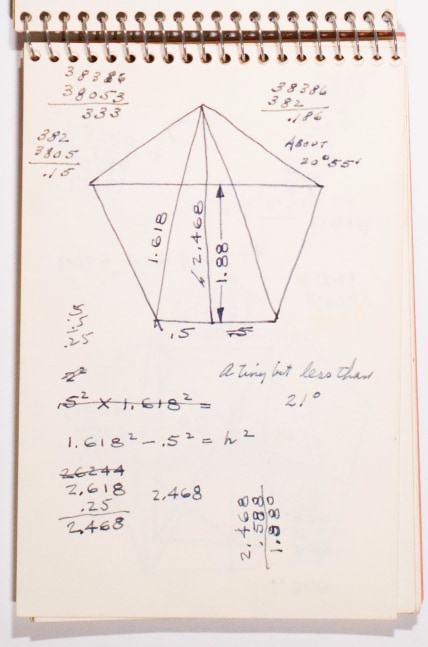 38386
38053
333
38386
382
.186
ABOUT
20°55'
382
3805
.15
1.618
2.468
1.88
.5
.5
.25
A tiny bit less than
21°
2²
.5² X 1.618² =
1.618² - .5² = h²
26244
2.618
.25
2.468
2.468
2.468
.588
1.880